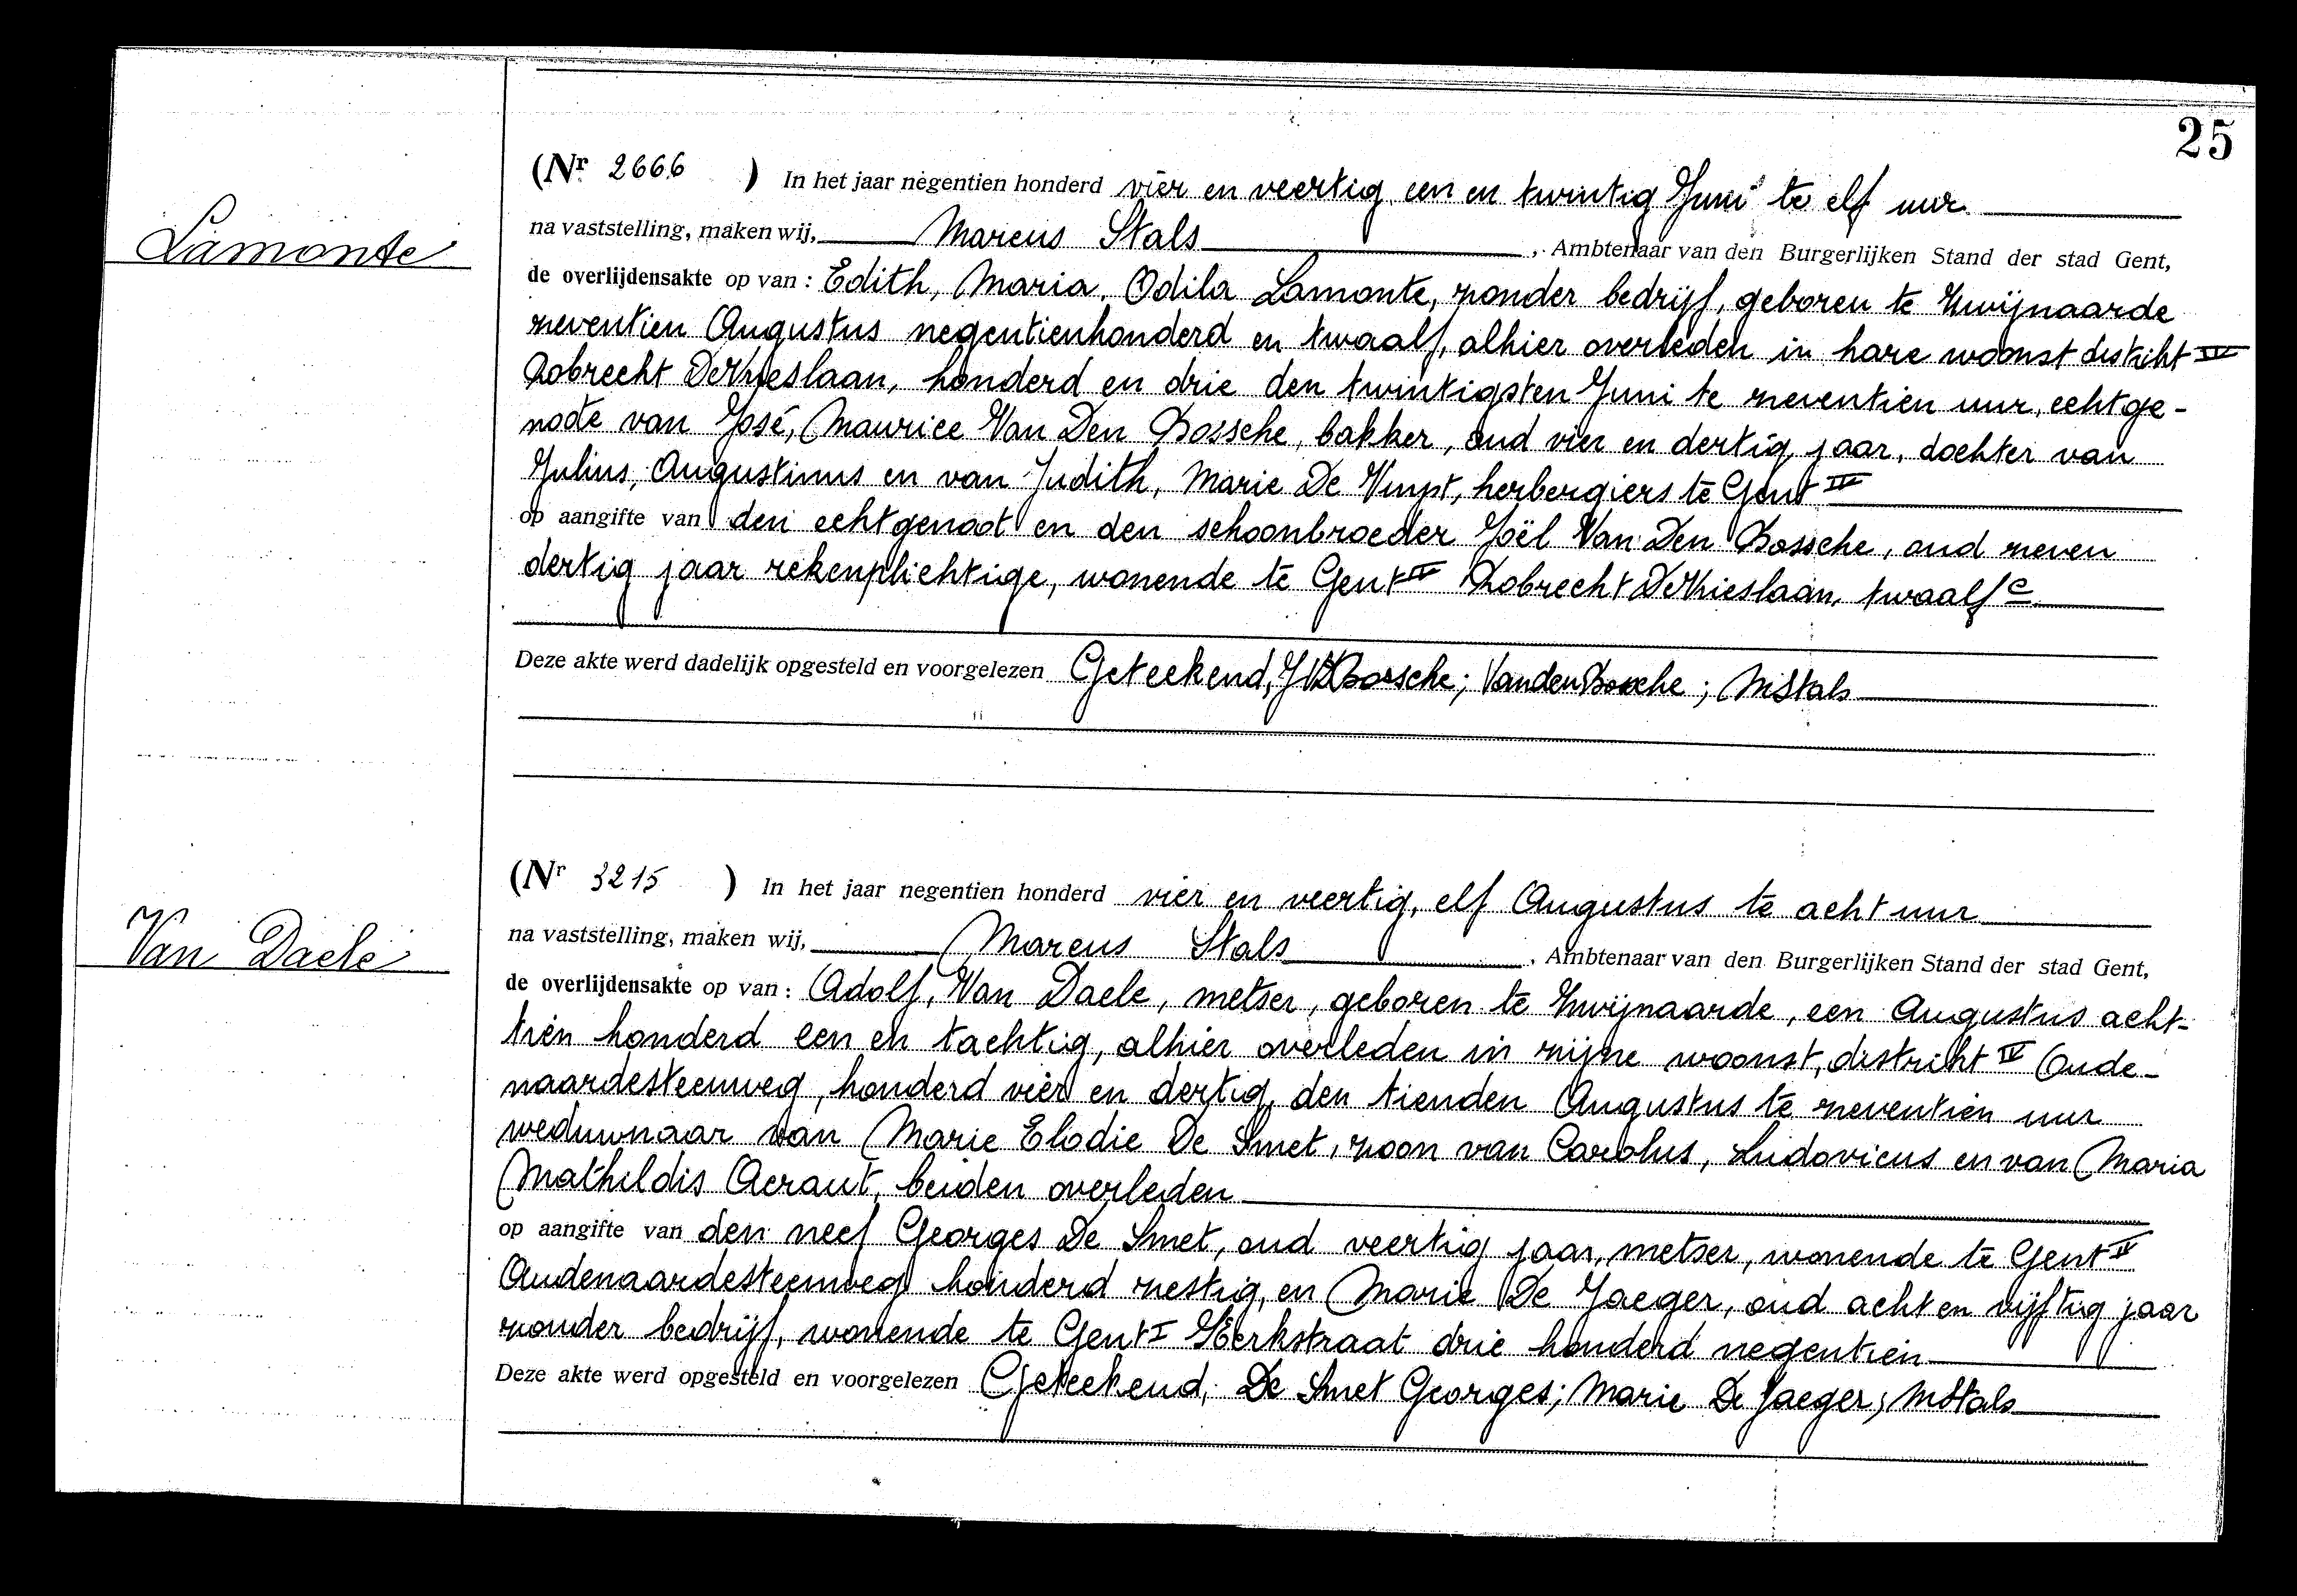 25
(Nr 2666 ) In het jaar negentien honderd vier en veertig, een en twintig Juni te elf uur
Lamonte
na vaststelling, maken wij, Marcus Stals, Ambtenaar van den Burgerlijken Stand der stad Gent,
de overlijdensakte op van : Edith, Maria, Odila Lamonte, zonder bedrijf, geboren te Zwijnaarde
zeventien Augustus negentienhonderd en twaalf, alhier overleden in hare woonst distrikt IV
Robrecht De Vrieslaan, honderd en drie den twintigsten Juni te zeventien uur, echtge-
node van José, Maurice Van Den Bossche, bakker, oud vier en dertig jaar, dochter van
Julius, Augustinus en van Judith, Marie De Vinpt, herbergiers te Gent IV
op aangifte van den echtgenoot en den schoonbroeder Joël Van Den Bossche, oud zeven
dertig jaar rekenplichtige, wonende te Gent IV Robrecht De Vrieslaan, twaalf c
Deze akte werd dadelijk opgesteld en voorgelezen Geteekend, JVDBossche; VandenBossche; MStals
(Nr 3215 ) In het jaar negentien honderd vier en veertig, elf Augustus te acht uur
Van Daele
na vaststelling, maken wij, Marcus Stals, Ambtenaar van den Burgerlijken Stand der stad Gent,
de overlijdensakte op van : Adolf, Van Daele, metser, geboren te Zwijnaarde, een Augustus acht-
tien honderd een en tachtig, alhier overleden in zijne woonst, distrikt IV Oude-
naardesteenweg, honderd vier en dertig, den tienden Augustus te zeventien uur
weduwnaar van Marie Elodie De Smet, zoon van Carolus, Ludovicus en van Maria
Mathildis Acraut, beiden overleden
op aangifte van den neef Georges De Smet, oud veertig jaar, metser, wonende te Gent IV
Oudenaardesteenweg honderd zestig, en Marie De Jaeger, oud acht en vijftig jaar
zonder bedrijf, wonende te Gent I Kerkstraat drie honderd negentien
Deze akte werd opgesteld en voorgelezen Geteekend, De Smet Georges; Marie De Jaeger; MStals